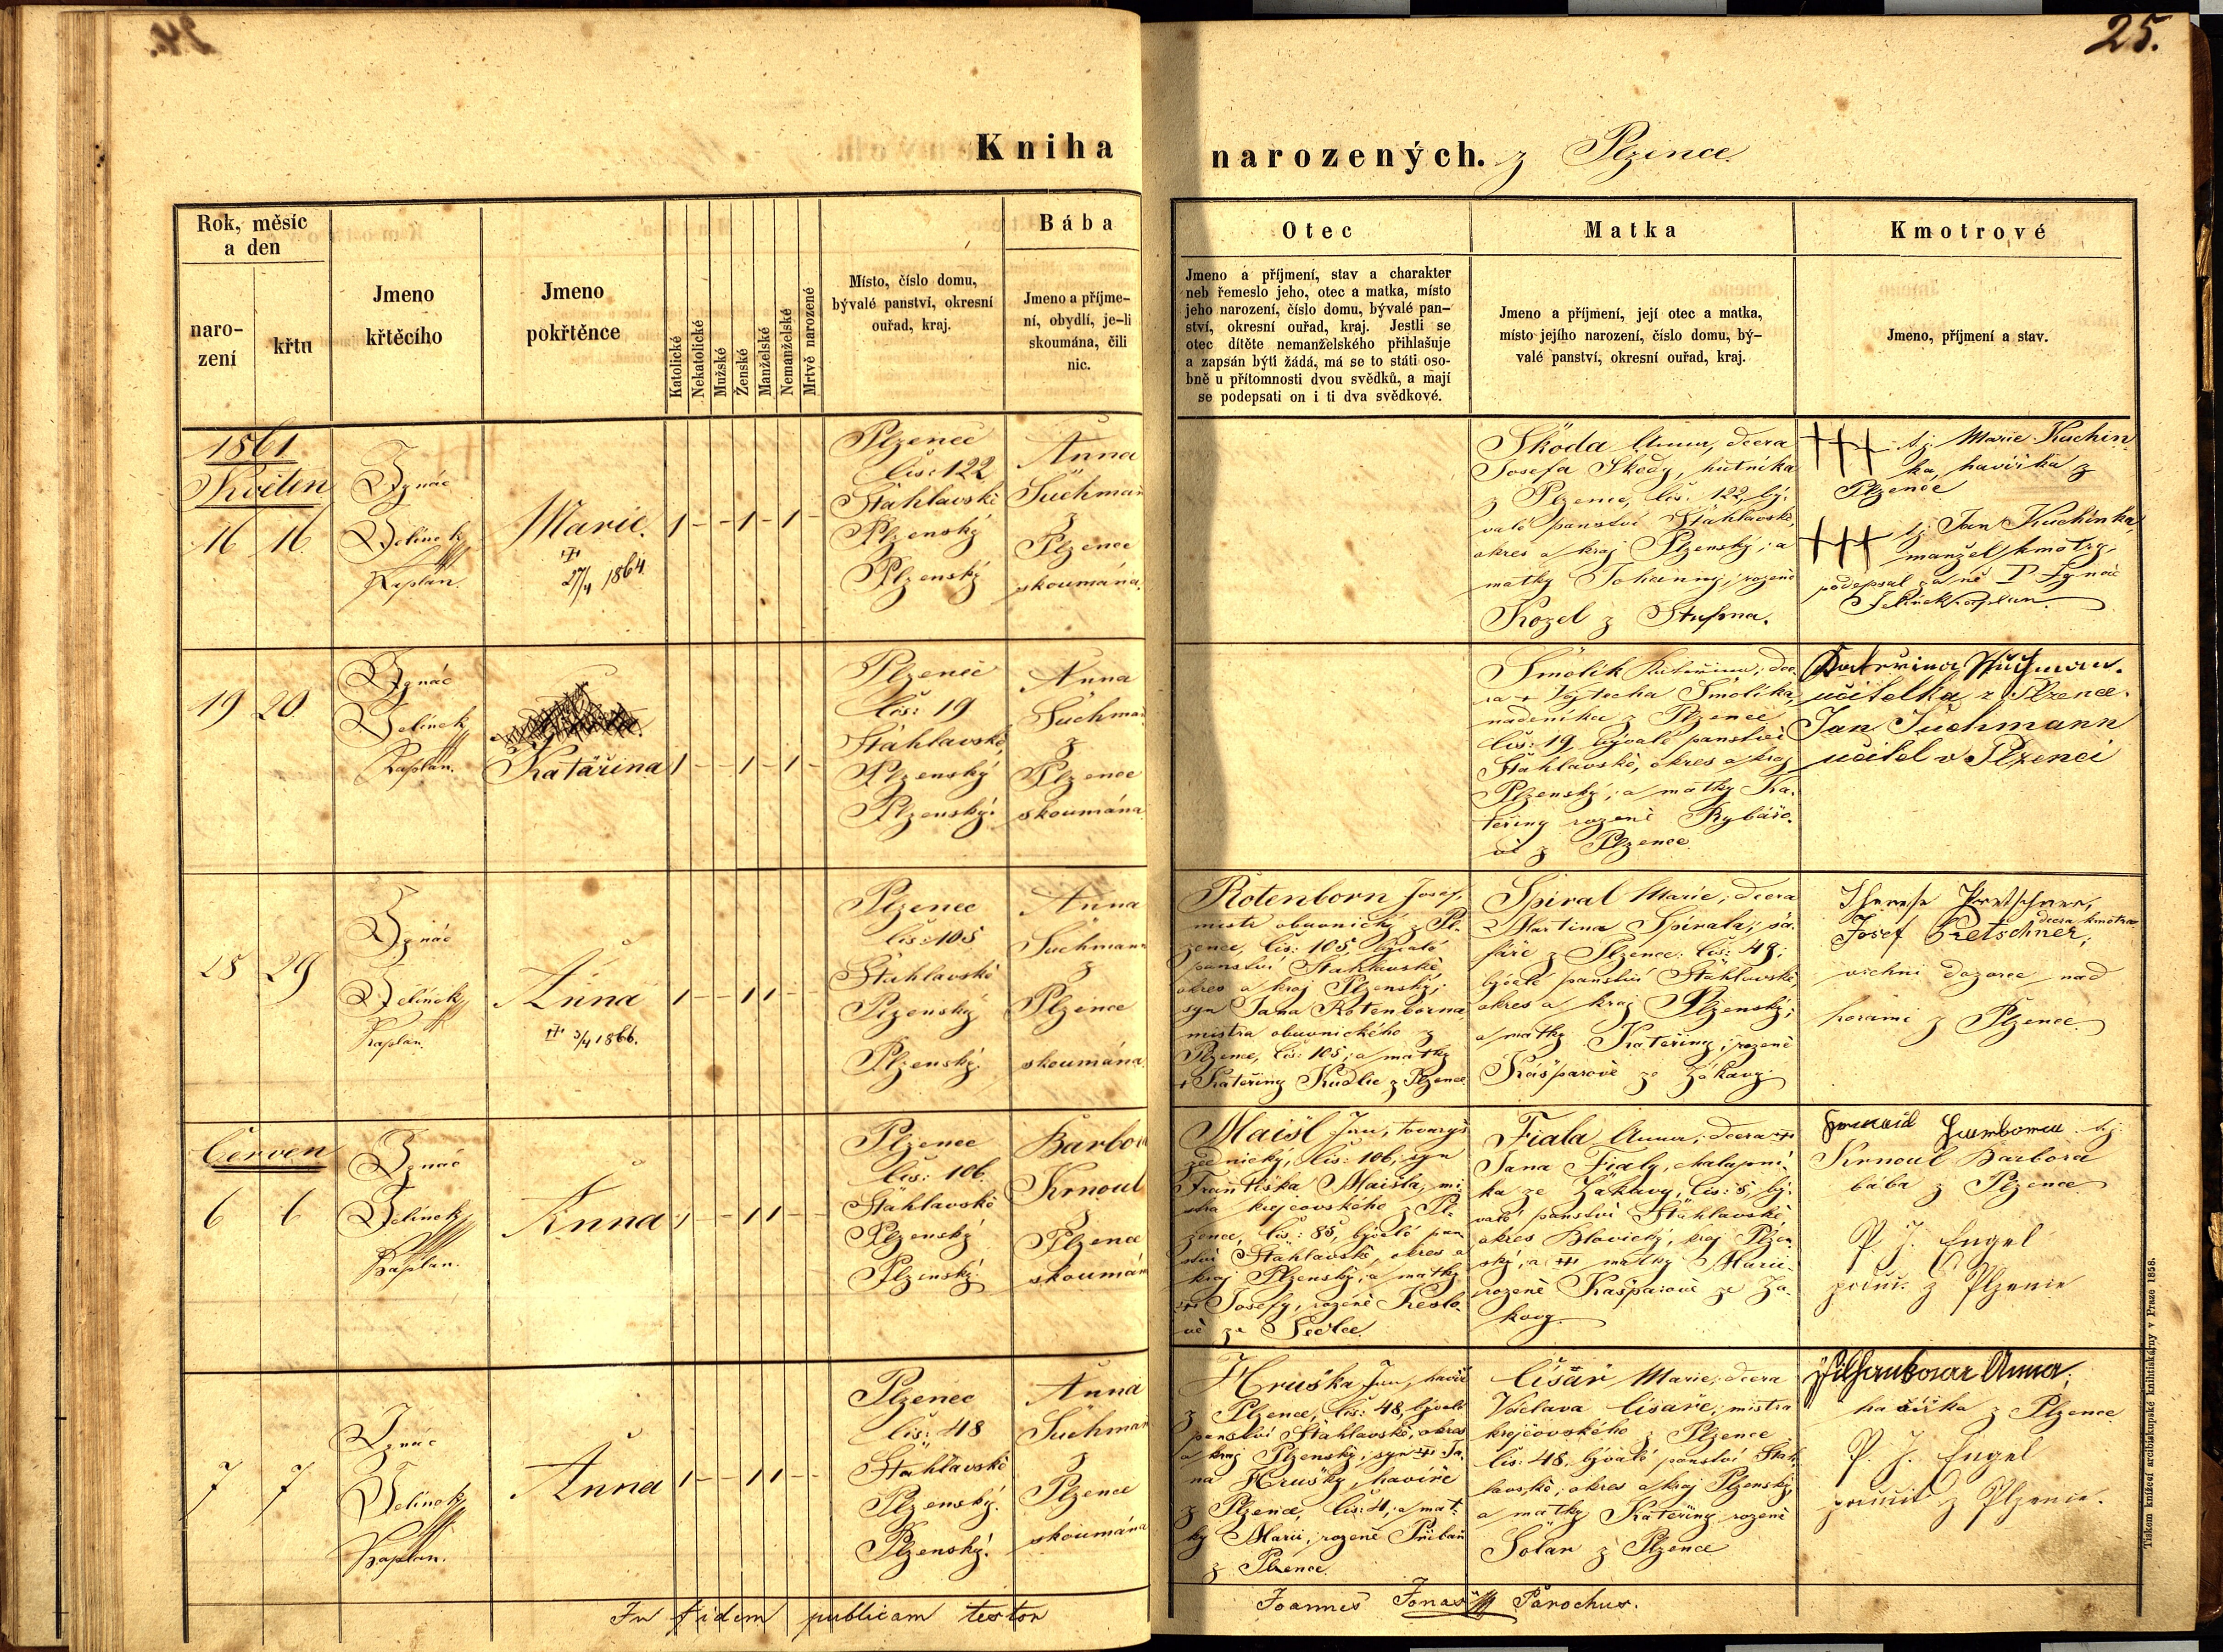 25.
Kniha narozených. z Plzence
Rok, měsíc
a den
naro-
zení
křtu
Jmeno
křtěcího
Jmeno
pokřtěnce
Katolické
Nekatolické
Mužské
Ženské
Manželské
Nemanželské
Mrtvě narozené
Místo, číslo domu,
bývalé panství, okresní
ouřad, kraj.
Bába
Jmeno a příjme-
ní, obydlí, je-li
skoumána, čili
nic.
Otec
Jmeno a příjmení, stav a charakter
neb řemeslo jeho, otec a matka, místo
jeho narození, číslo domu, bývalé pan-
ství, okresní ouřad, kraj. Jestli se
otec dítěte nemanželského přihlašuje
a zapsán býti žádá, má se to státi oso-
bně u přítomnosti dvou svědků, a mají
se podepsati on i ti dva svědkové.
Matka
Jmeno a příjmení, její otec a matka,
místo jejího narození, číslo domu, bý-
valé panství, okresní ouřad, kraj.
Kmotrové
Jmeno, příjmení a stav.
1861
Květen
16 16
Ignác
Jelínek
Kaplan.
Marie.
27/4 1864
1 - - 1 - 1 -
Plzenec
čís: 122
Šťáhlavské
Plzenský
Plzenský
Anna
Suchman
z
Plzence
skoumána.
Škoda Anna, dcera
Josefa Škody, hutníka
z Plzence, čís. 122, bý-
valé panství Šťáhlavské,
okres a kraj Plzenský; a
matky Johanny, rozené
Kozel z
+++ tj. Marie Kuchin-
ka, havířka z
Plzence
+++ tj. Jan Kuchinka
manžel kmotry,
podepsal za ně P. Ignác
Jelínek kaplan
19 20
Ignác
Jelínek
Kaplan.
Katařina
1 - - 1 - 1 -
Plzenec
čís: 19
Šťáhlavské,
Plzenský
Plzenský.
Anna
Suchman
z
Plzence
skoumána
Smolík Kateřina, dce-
ra + Vojtěcha Smolíka,
nádeníka z Plzence
čís: 19, bývalé panství
Šťahlavské, okres a kraj
Plzenský; a matky Ka-
teřiny rozené Rybářo-
vé z Plzence.
Kateřina Suchman.
učitelka z Plzence.
Jan Suchmann
učitel v Plzenci
28 29
Ignác
Jelínek
Kaplan.
Anna
3/4 1866.
1 - - 1 1 - -
Plzenec
čís: 105
Šťahlavské
Plzenský
Plzenský.
Anna
Suchmann
z
Plzence
skoumána.
Rotenborn Josef,
mistr obuvnický z Pl-
zence, čís: 105, bývalé
panství Šťahlavské,
okres a kraj Plzenský;
syn Jana Rotenborna
mistra obuvnického z
Plzence, čís: 105; a matky
+ Kateřiny Kudlic z Plzence
Spiral Marie, dcera
Martina Spirala, šá-
fáře z Plzence čís: 49;
bývalé panství Šťahlavské,
okres a kraj Plzenský;
a matky Kateřiny, rozené
Kašparové ze Zákavy.
Therese Pretschner,
dcera kmotra
Josef Pretschner,
vrchní dozorce nad
horami z Plzence
Červen
6 6
Ignác
Jelínek
Kaplan.
Anna
1 - - 1 1 - -
Plzenec
čís: 106
Šťahlavské
Plzenský
Plzenský
Barbora
Krnoul
z
Plzence
skoumána
Maisl Jan, tovaryš
zednický, čís: 106; syn
Františka Maisla, mi-
stra krejčovského z Pl-
zence, čís: 85, bývalé pan-
ství Šťahlavské, okres a
kraj Plzenský; a matky
Josefy, rozené
vé ze Sedlce.
Fiala Anna, dcera
Jana Fialy, chalupní-
ka ze Zákavy, čís: 5, bý-
valé panství Šťahlavské
okres Blovický, kraj Plzen-
ský; a matky Marie
rozené Kašparové ze Zá-
kavy.
tj.
Krnoul Barbora
bába z Plzence
P. J. Engel
z Plzence
7 7
Ignác
Jelínek
Kaplan.
Anna
1 - - 1 1 - -
Plzenec
čís: 48
Šťahlavské
Plzenský.
Plzenský.
Anna
Suchman
z
Plzence
skoumána
Hruška Jan, havíř
z Plzence, čís: 48, bývalé
panství Šťahlavské, okres
a kraj Plzenský; syn Ja-
na Hrušky, havíře
z Plzence, čís: 4; a mat-
ky Marie, rozené Přiban
z Plzence.
Císař Marie, dcera
Václava Císaře, mistra
krejčovského z Plzence
čís: 48, bývalé panství Šťah-
lavské; okres a kraj Plzenský;
a matky Kateřiny rozené
Solar z Plzence
Anna,
havířka z Plzence
P. J. Engel
z Plzence.
In fidem publicam testor
Joannes Jonas Parochus.
Tiskem knížecí arcibiskupské knihtiskárny v Praze 1858.